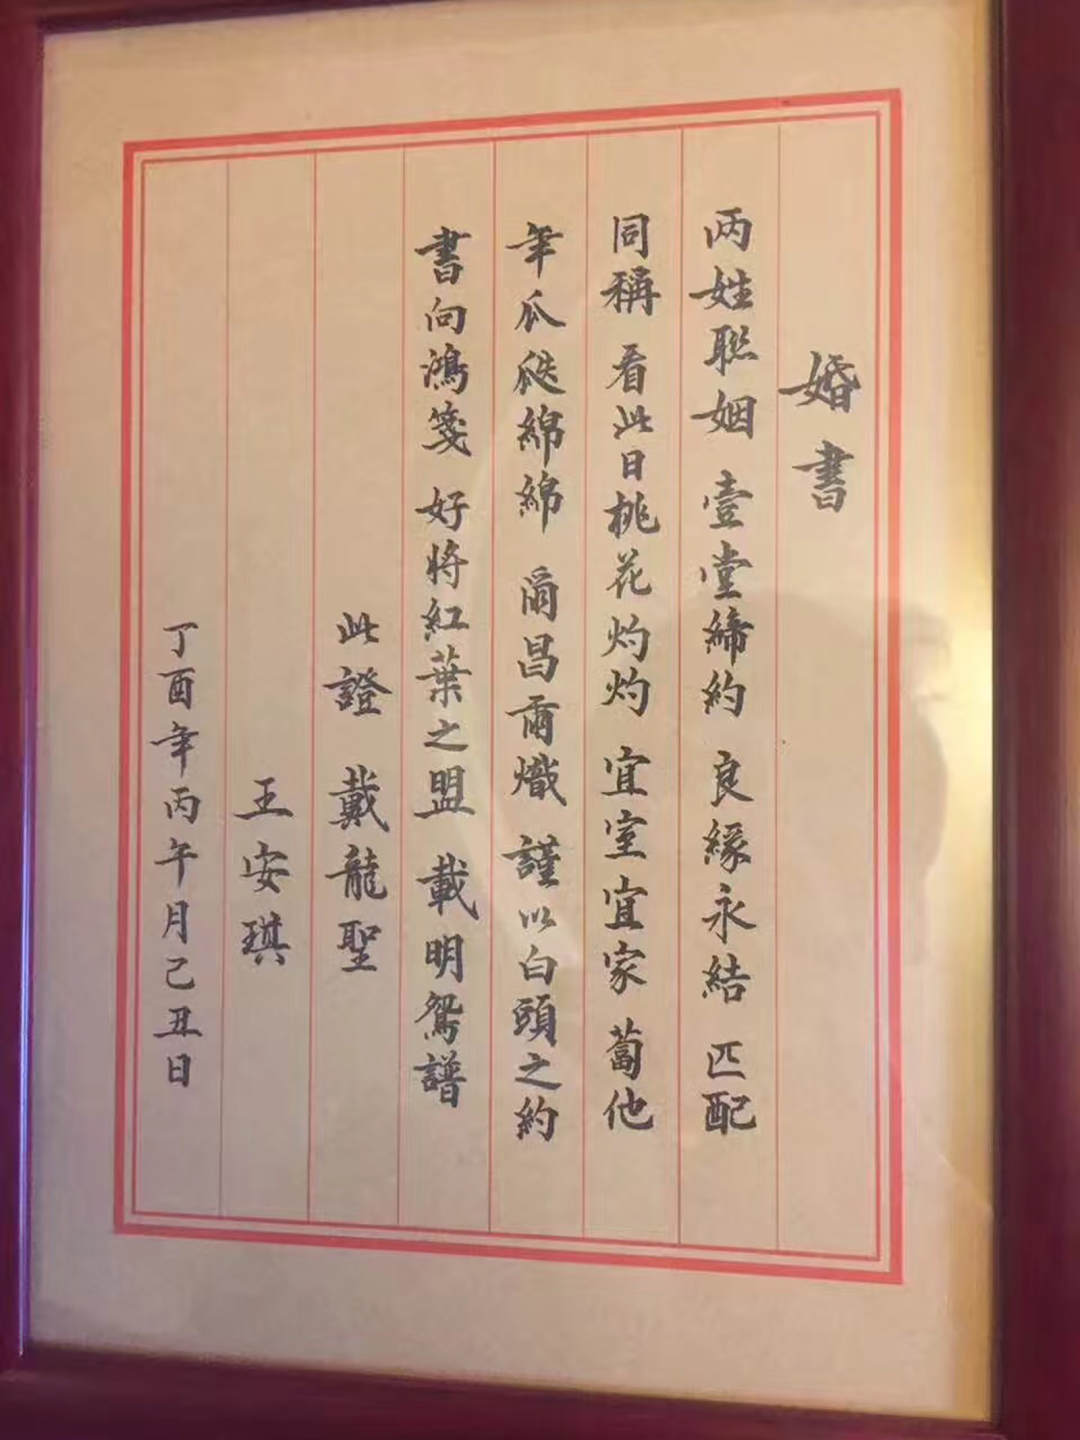 婚書
两姓聯姻 壹堂締約 良緣永結 匹配
同稱 看此日桃花灼灼 宜室宜家 蔔他
年瓜瓞綿綿 爾昌爾熾 謹以白頭之約
書向鴻箋 好將紅葉之盟 載明鴛譜
此證 戴龍聖
王安琪
丁酉年丙午月己丑日